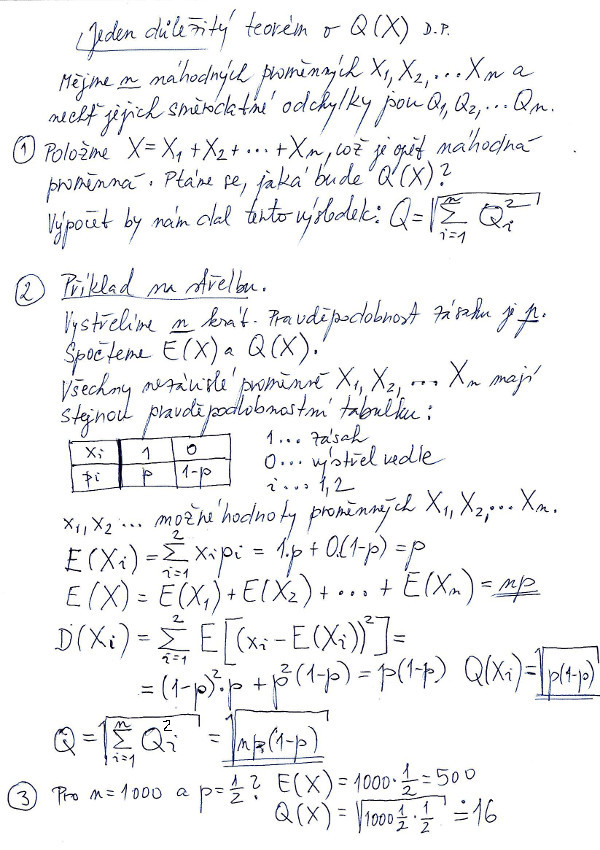 Jeden důležitý teorém o Q(X) D.P.
Mějme n náhodných proměnných X₁, X₂, ... Xn a
nechť jejich směrodatné odchylky jsou Q₁, Q₂, ... Qn.
① Položme X = X₁ + X₂ + ... + Xn, což je opět náhodná
proměnná. Ptáme se, jaká bude Q(X)?
Výpočet by nám dal tento výsledek: Q = √(∑ᵢ₌₁ⁿ Qᵢ²)
② Příklad na střelbu.
Vystřelíme n krát. Pravděpodobnost zásahu je p.
Spočteme E(X) a Q(X).
Všechny nezávislé proměnné X₁, X₂, ... Xn mají
stejnou pravděpodobnostní tabulku:
xi 1 0
pi p 1-p
1... zásah
0... výstřel vedle
i... 1,2
x₁, x₂ ... možné hodnoty proměnných X₁, X₂, ... Xn.
E(Xi) = ∑ᵢ₌₁² xipi = 1.p + 0.(1-p) = p
E(X) = E(X₁) + E(X₂) + ... + E(Xn) = np
D(Xi) = ∑ᵢ₌₁² E[(xi - E(Xi))²] =
= (1-p)².p + p²(1-p) = p(1-p) Q(Xi) = √(p(1-p))
Q = √(∑ᵢ₌₁ⁿ Qᵢ²) = √(np.(1-p))
③ Pro n = 1000 a p = 1/2? E(X) = 1000·1/2 = 500
Q(X) = √(1000 1/2 · 1/2) ≐ 16